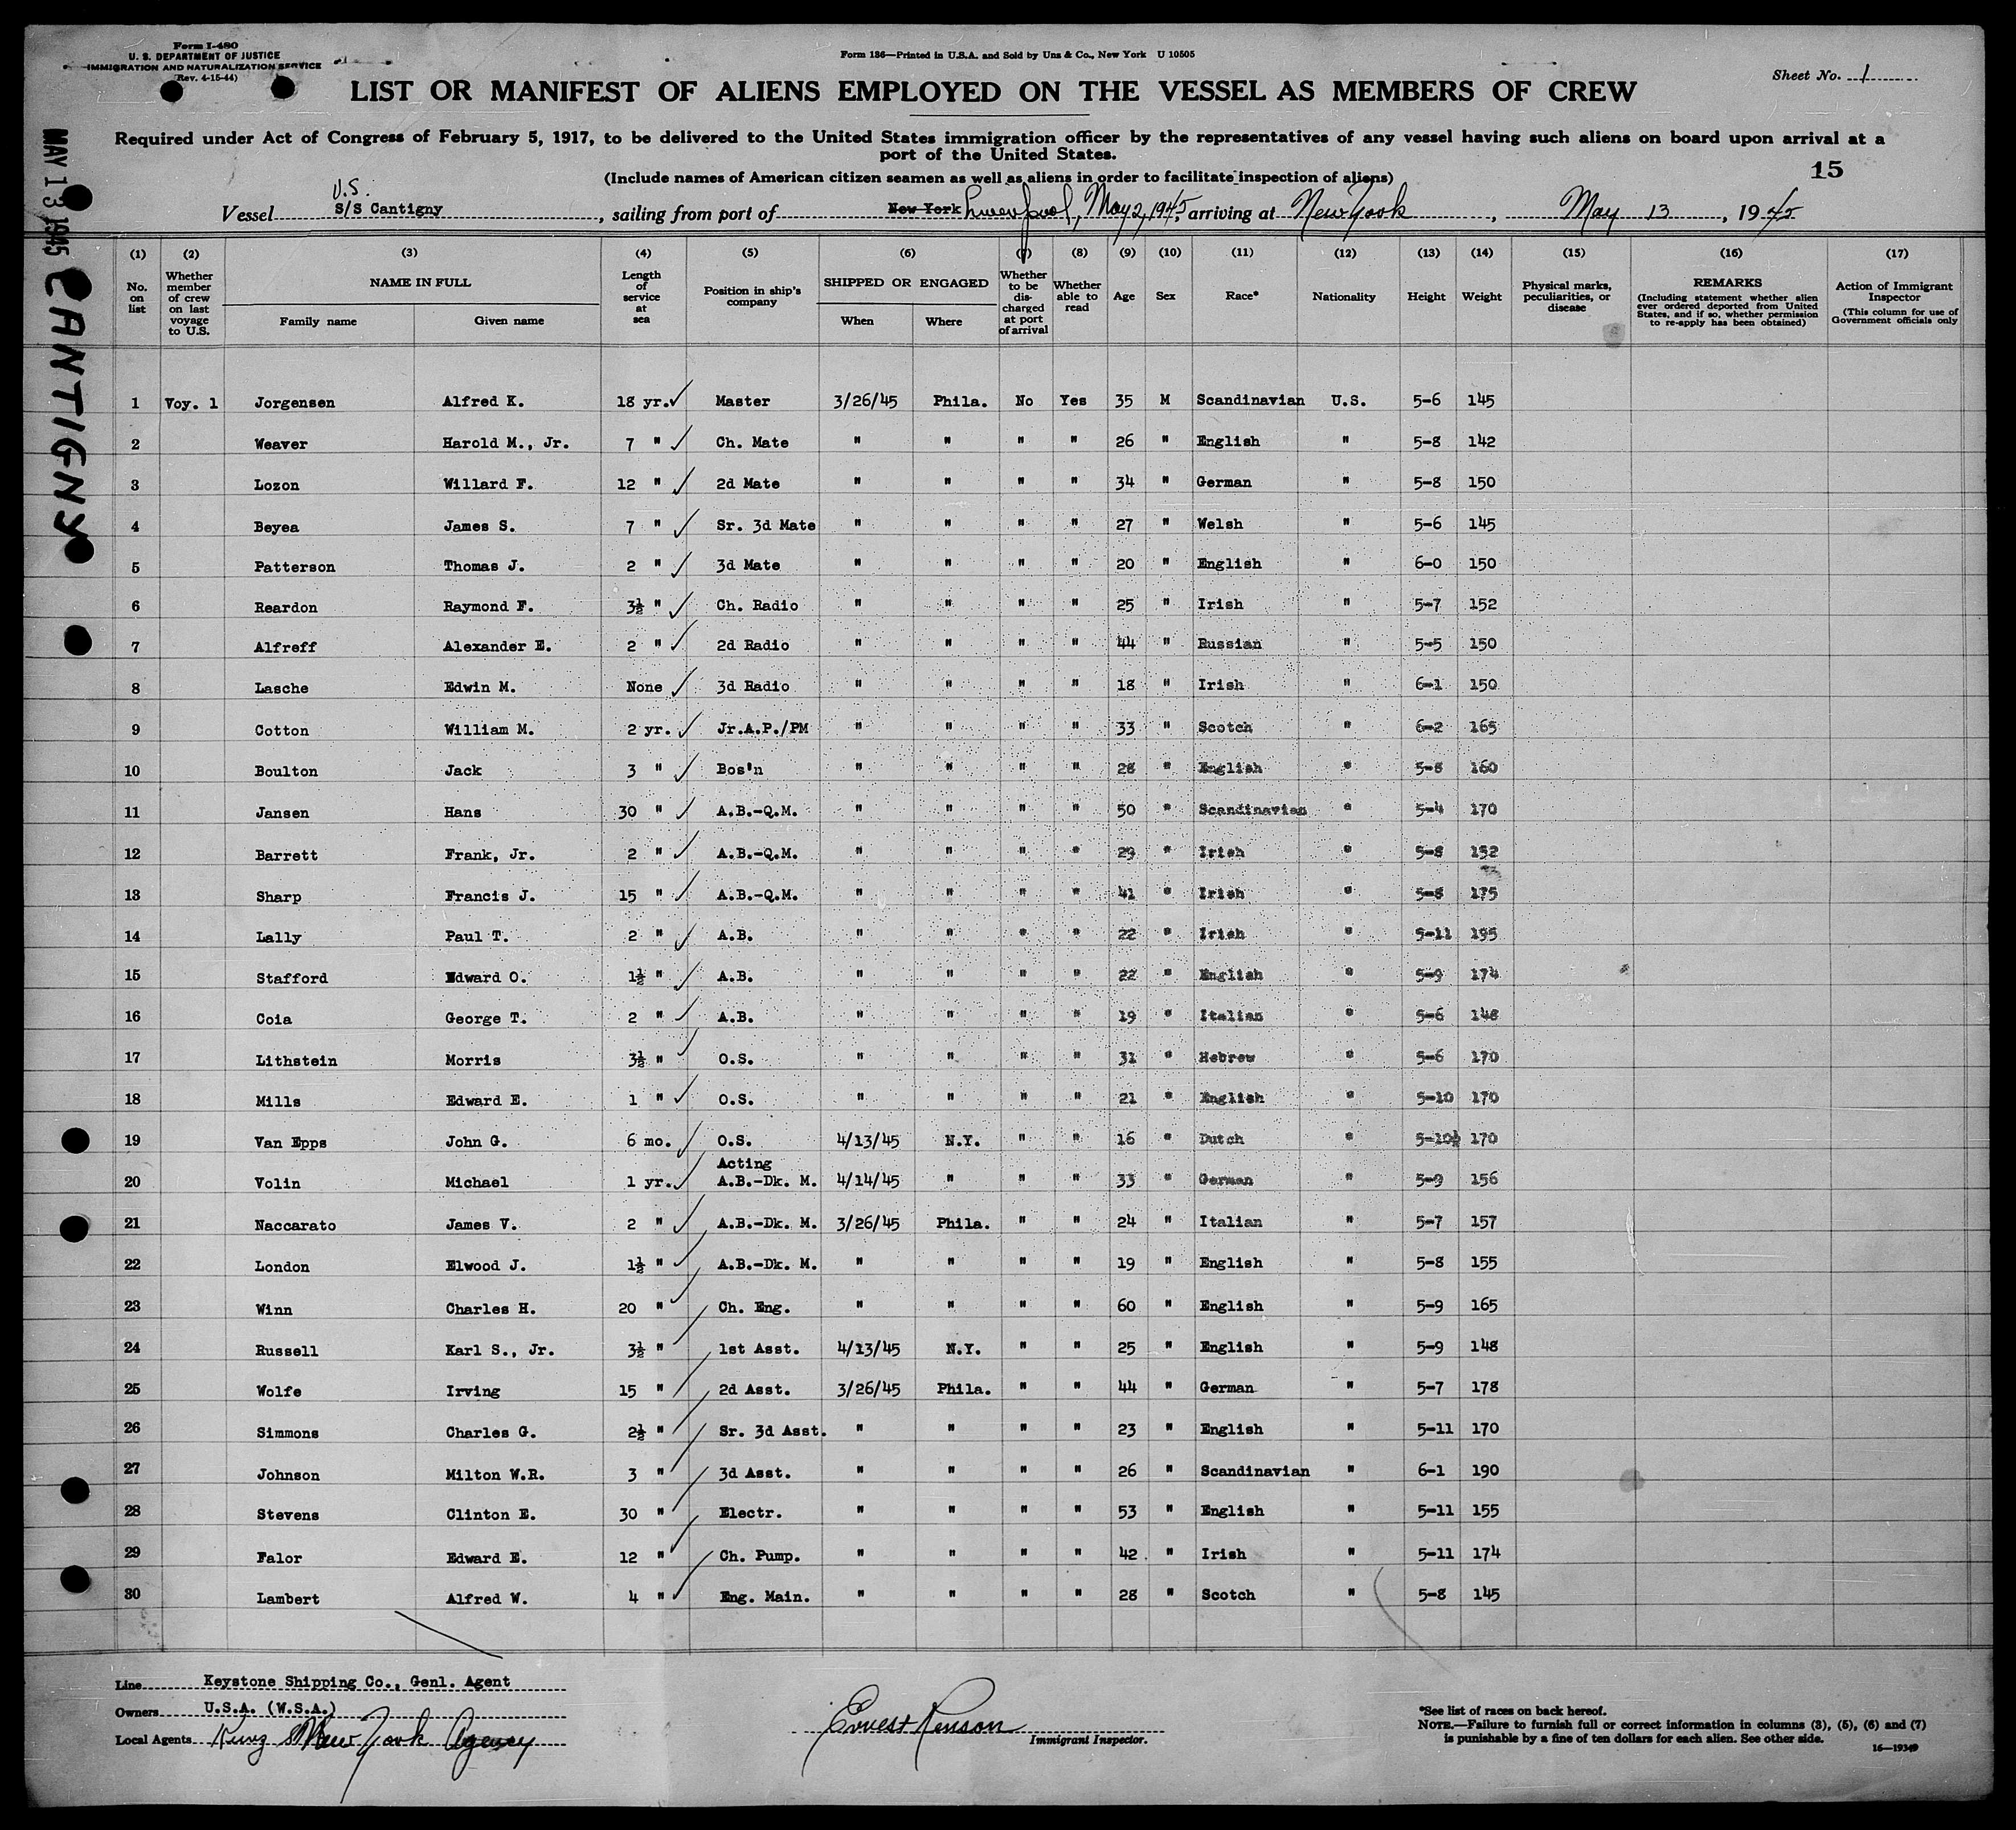 Form I-480
U. S. DEPARTMENT OF JUSTICE
IMMIGRATION AND NATURALIZATION SERVICE
(Rev. 4-15-44)
Form 136—Printed in U.S.A. and Sold by Unz & Co., New York U 10505
Sheet No. 1
LIST OR MANIFEST OF ALIENS EMPLOYED ON THE VESSEL AS MEMBERS OF CREW
Required under Act of Congress of February 5, 1917, to be delivered to the United States immigration officer by the representatives of any vessel having such aliens on board upon arrival at a
port of the United States.
15
(Include names of American citizen seamen as well as aliens in order to facilitate inspection of aliens)
MAY 13 1945 CANTIGNY
U.S.
Vessel S/S Cantigny, sailing from port of New York Liverpool, May 2, 1945 arriving at New York, May 13, 1945
(1) (2) (3) (4) (5) (6) (7) (8) (9) (10) (11) (12) (13) (14) (15) (16) (17)
No. on list
Whether member of crew on last voyage to U.S.
NAME IN FULL
Family name Given name
Length of service at sea
Position in ship's company
SHIPPED OR ENGAGED
When Where
Whether to be discharged at port of arrival
Whether able to read
Age
Sex
Race*
Nationality
Height
Weight
Physical marks, peculiarities, or disease
REMARKS
(Including statement whether alien ever ordered deported from United States, and if so, whether permission to re-apply has been obtained)
Action of Immigrant Inspector
(This column for use of Government officials only
1 Voy. 1 Jorgensen Alfred K. 18 yr. ✓ Master 3/26/45 Phila. No Yes 35 M Scandinavian U.S. 5-6 145
2 Weaver Harold M., Jr. 7 " ✓ Ch. Mate " " " " 26 " English " 5-8 142
3 Lozon Willard F. 12 " ✓ 2d Mate " " " " 34 " German " 5-8 150
4 Beyea James S. 7 " ✓ Sr. 3d Mate " " " " 27 " Welsh " 5-6 145
5 Patterson Thomas J. 2 " ✓ 3d Mate " " " " 20 " English " 6-0 150
6 Reardon Raymond F. 3½ " ✓ Ch. Radio " " " " 25 " Irish " 5-7 152
7 Alfreff Alexander E. 2 " ✓ 2d Radio " " " " 44 " Russian " 5-5 150
8 Lasche Edwin M. None ✓ 3d Radio " " " " 18 " Irish " 6-1 150
9 Cotton William M. 2 yr. ✓ Jr.A.P./PM " " " " 33 " Scotch " 6-2 165
10 Boulton Jack 3 " ✓ Bos'n " " " " 28 " English " 5-8 160
11 Jansen Hans 30 " ✓ A.B.-Q.M. " " " " 50 " Scandinavian " 5-4 170
12 Barrett Frank, Jr. 2 " ✓ A.B.-Q.M. " " " " 29 " Irish " 5-8 152
13 Sharp Francis J. 15 " ✓ A.B.-Q.M. " " " " 41 " Irish " 5-8 175
14 Lally Paul T. 2 " ✓ A.B. " " " " 22 " Irish " 5-11 195
15 Stafford Edward O. 1½ " ✓ A.B. " " " " 22 " English " 5-9 174
16 Coia George T. 2 " ✓ A.B. " " " " 19 " Italian " 5-6 148
17 Lithstein Morris 3½ " ✓ O.S. " " " " 31 " Hebrew " 5-6 170
18 Mills Edward E. 1 " ✓ O.S. " " " " 21 " English " 5-10 170
19 Van Epps John G. 6 mo. ✓ O.S. 4/13/45 N.Y. " " 16 " Dutch " 5-10½ 170
20 Volin Michael 1 yr. ✓ Acting A.B.-Dk. M. 4/14/45 " " " 33 " German " 5-9 156
21 Naccarato James V. 2 " ✓ A.B.-Dk. M. 3/26/45 Phila. " " 24 " Italian " 5-7 157
22 London Elwood J. 1½ " ✓ A.B.-Dk. M. " " " " 19 " English " 5-8 155
23 Winn Charles H. 20 " ✓ Ch. Eng. " " " " 60 " English " 5-9 165
24 Russell Karl S., Jr. 3½ " ✓ 1st Asst. 4/13/45 N.Y. " " 25 " English " 5-9 148
25 Wolfe Irving 15 " ✓ 2d Asst. 3/26/45 Phila. " " 44 " German " 5-7 178
26 Simmons Charles G. 2½ " ✓ Sr. 3d Asst. " " " " 23 " English " 5-11 170
27 Johnson Milton W.R. 3 " ✓ 3d Asst. " " " " 26 " Scandinavian " 6-1 190
28 Stevens Clinton E. 30 " ✓ Electr. " " " " 53 " English " 5-11 155
29 Falor Edward E. 12 " ✓ Ch. Pump. " " " " 42 " Irish " 5-11 174
30 Lambert Alfred W. 4 " ✓ Eng. Main. " " " " 28 " Scotch " 5-8 145
Line Keystone Shipping Co., Genl. Agent
Owners U.S.A. (W.S.A.)
Local Agents New York Agency
Ernest Renson
Immigrant Inspector.
*See list of races on back hereof.
NOTE.—Failure to furnish full or correct information in columns (3), (5), (6) and (7)
is punishable by a fine of ten dollars for each alien. See other side.
16—19349